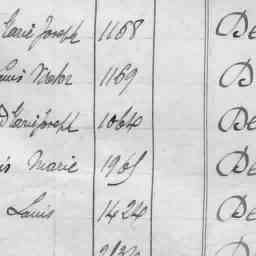 Marie Joseph 1168 De
Louis Victor 1169 D
Marie Joseph 1064 De
Marie 1965 De
Louis 1424 De